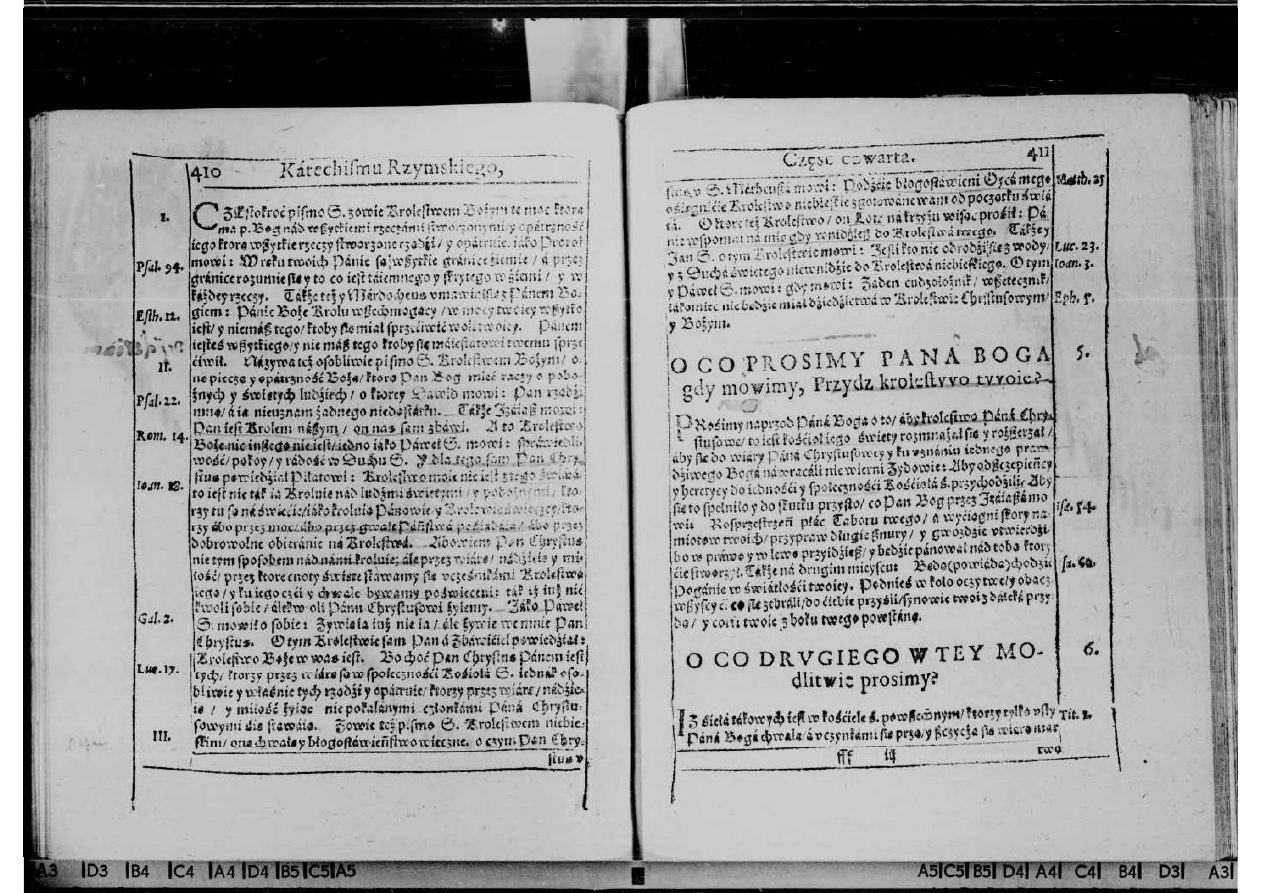 410 Kátechismu Rzymskiego,
I. CZęstokroć pismo S. zowie Krolestwem Bożym te moc ktora
ma p. Bog nád wszytkiemi rzeczámi stworzonymi / y opátrzność
iego ktora wszytkie rzeczy stworzone rządzi / y opátruie. iáko Prorok
Psal. 94. mowi: W ręku twoich Pánie są wszytkie gránice źiemie / á przez
gránice rozumie się y to co iest táiemnego y skrytego w źiemi / y w
káżdey rzeczy. Tákże też y Márdocheus vmawiáiąc się z Pánem Bo-
Esth. 12. giem: Pánie Boże Krolu wszechmogący / w mocy twoiey wszytko
iest / y niemász tego / ktoby się miał sprzećiwić woli twoiey. Pánem
iesteś wszytkiego / y nie mász tego ktoby się máiestatowi twemu sprze-
II. ćiwił. Názywa też osobliwie pismo S. Krolestwem Bożym / o-
nę pieczę y opátrzność Bożą / ktorą Pan Bog mieć raczy o pobo-
Psal. 22. żnych y świętych ludziech / o ktorey Dawid mowi: Pan rządzi
mną / á ia nieuznam żadnego niedostátku. Tákże Izáiasz mowi:
Rom. 14. Pan iest Krolem nászym / on nas sam zbáwi. A to Krolestwo
Boże nic inszego nie iest / iedno iáko Páweł S. mowi: spráwiedli-
wość / pokoy / y rádość w Duchu S. Y dla tego sam Pan Chry-
Ioan. 18. stus powiedział Piłatowi: Krolestwo moie nie iest z tego świátá
to iest nie ták ia Kroluię nád ludźmi świętymi / y pobożnymi / kto-
rzy tu są ná świecie / iáko kroluią Pánowie / y Krolowie świeccy / kto-
rzy ábo przez moc / ábo przez gwałt Páństwá pośiadáią / ábo przez
dobrowolne obieránie ná Krolestwá. Abowiem Pan Chrystus
nie tym sposobem nád námi kroluie; ále przez wiárę / nádzieię y mi-
łość / przez ktore cnoty święte stawamy się vczesnikámi Krolestwá
iego / y ku iego czći y chwale bywamy poświęceni: ták iż iuż nie
kwoli sobie / ále kwoli Pánu Chrystusowi żyiemy. Iáko Páweł
Gal. 2. S. mowił o sobie: Żywię ia iuż nie ia / ále żywie we mnie Pan
Chrystus. O tym Krolestwie sam Pan á Zbáwićiel powiedział:
Luc. 17. Krolestwo Boże w was iest. Bo choć Pan Chrystus Pánem iest
tych / ktorzy przez wiárę są w społeczności Kośćiołá S. iednák oso-
bliwie y właśnie tych rządzi y opátruie / ktorzy przez wiárę / nádzie-
ię / y miłość żyiąc niepokalánymi członkámi Páná Chrystu-
sowymi się stawáią. Zowie też pismo S. Krolestwem niebie-
III. skim / onę chwałę y błogosłáwieństwo wieczne. o czym Pan Chry-
stus v
Część czwarta. 411
stus v S. Mátheuszá mowi: Podźćie błogosłáwieni Oycá mego Matth. 25
ośiągnićie Krolestwo niebieskie zgotowáne wam od początku świá-
tá. O ktore też Krolestwo / on Łotr ná krzyżu wisząc prośił: Pá-
nie wspomni ná mię gdy wnidziesz do Krolestwá twego. Tákże y Luc. 23.
Jan S. o tym Krolestwie mowi: Jeśli kto nie odrodzi się z wody /
y z Duchá świętego nie wnidzie do Krolestwá niebieskiego. O tym Ioan. 3.
y Páweł S. mowi: gdy mowi: Żaden cudzołożnik / wszetecznik /
łákomiec nie będzie miał dziedzictwá w Krolestwie Chrystusowym / Eph. 5.
y Bożym.
O CO PROSIMY PANA BOGA 5.
gdy mowimy, Przydz krolestwo twoie?
PRośimy naprzod Páná Bogá o to / áby krolestwo Páná Chry-
stusowe / to iest kośćioł iego święty rozmnażał się y rozszerzał /
áby się do wiáry Páná Chrystusowey y ku vznániu iednego praw-
dźiwego Bogá náwracáli niewierni Żydowie: Aby odszczepieńcy
y heretycy do iedności y społeczności Kośćiołá ś. przychodzili: Aby
się to spełniło y do skutku przyszło / co Pan Bog przez Izáiaszá mo-
wi: Rosprzestrzeń płác Táboru twego / á wyćiągni skory ná- Isa. 54.
miotow twoich / przypraw długie sznury / y gwoździe vtwierdzi
bo w prawo y w lewo przyidziesz / y będzie pánował nád tobą ktory
ćię stworzył. Tákże ná drugim mieyscu: Będą (powiáda) chodzić Isa. 60.
Pogánie w świátłości twoiey. Podnieś w koło oczy twe / y obacz
wszyscy ci co się zebráli / do ćiebie przyszli / synowie twoi z dáleká przy-
dą / y corki twoie z boku twego powstáną.
O CO DRVGIEGO W TEY MO- 6.
dlitwie prosimy?
IZ śiełá tákowych iest w kośćiele ś. powszechnym / ktorzy tylko vsty Tit. 1.
Páná Bogá chwalą / á vczynkámi się przą / y szczycą się wiárą mar-
fff iij twą
A3 D3 B4 C4 A4 D4 B5 C5 A5
A5 C5 B5 D4 A4 C4 B4 D3 A3